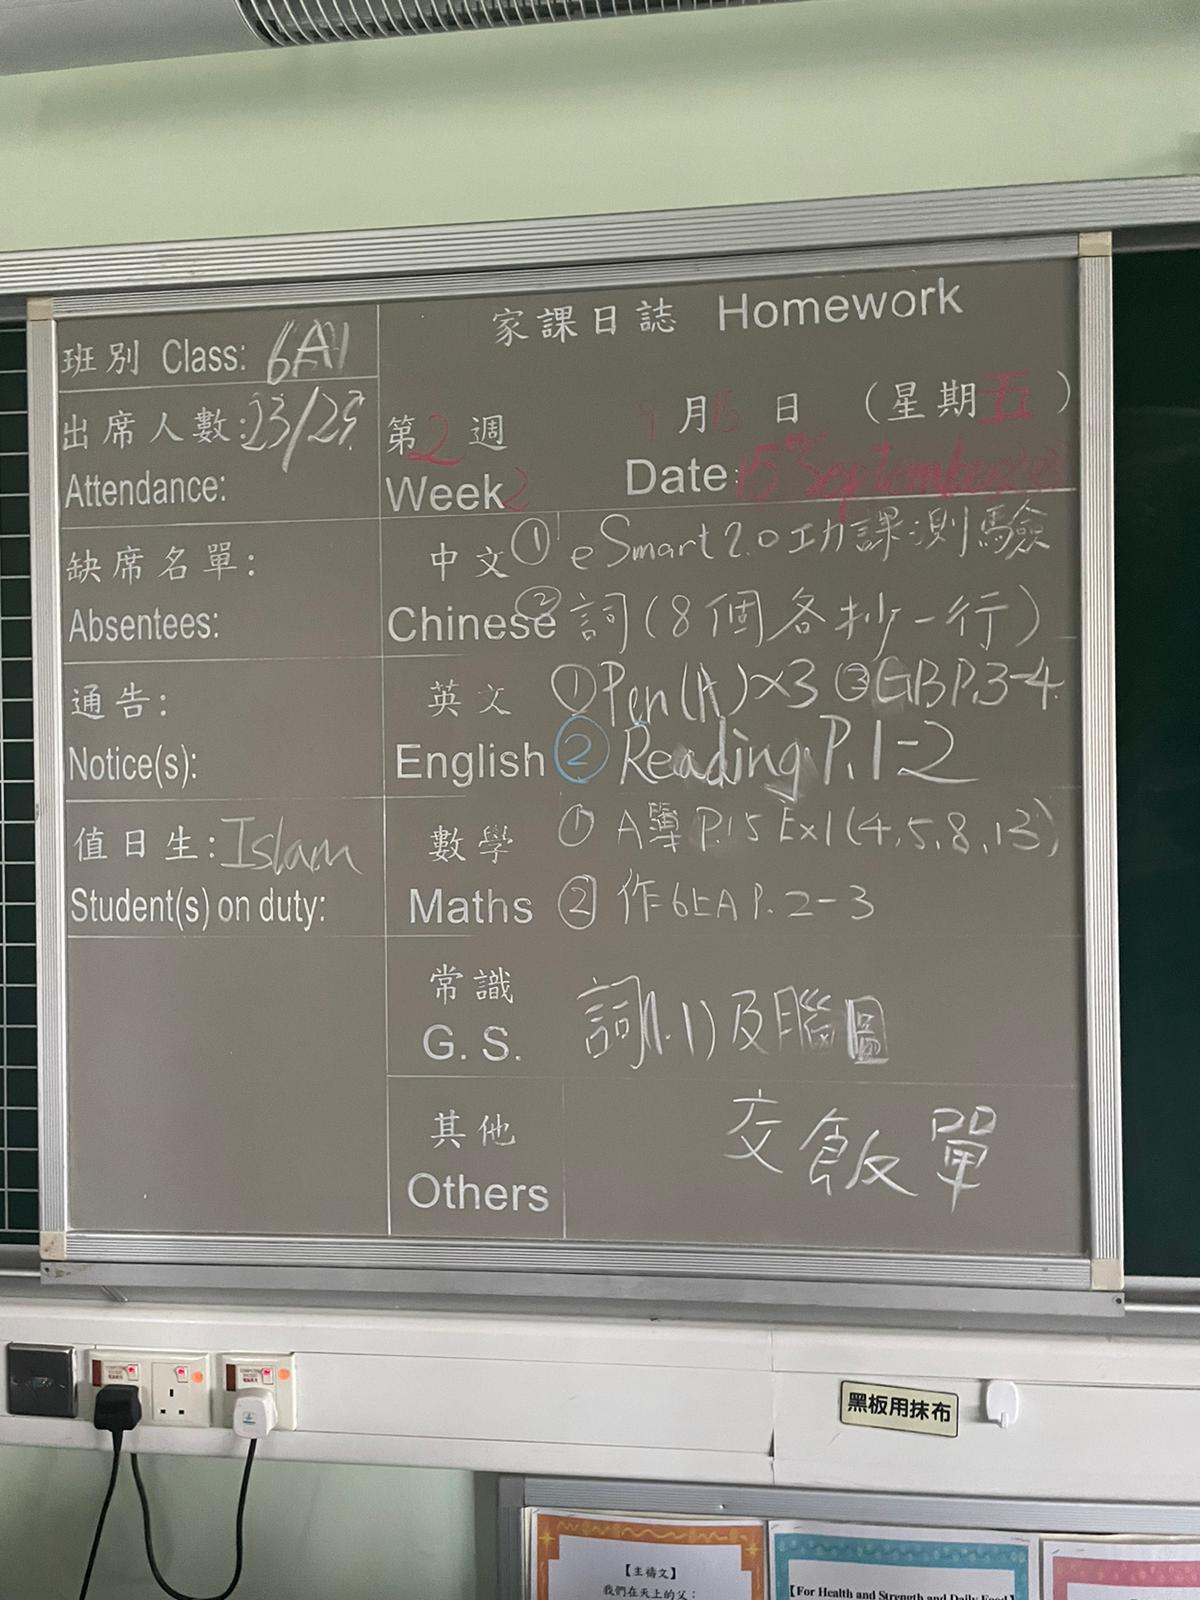 家課日誌 Homework
班別 Class: 6A1
出席人數:23/29
Attendance:
第2週 9月15日 (星期五)
Week 2 Date: 15th September
缺席名單:
Absentees:
中文 ① eSmart 2.0 功課測驗
Chinese ② 詞(8個各抄一行)
通告:
Notice(s):
英文 ① Pen(A)×3 ③ GB P.3-4
English ② Reading P.1-2
值日生: Islam
Student(s) on duty:
數學 ① A簿 P.15 Ex1(4,5,8,13)
Maths ② 作6上A P.2-3
常識
G. S. 詞(1.1)及腦圖
其他
Others 交飯單
黑板用抹布
【主禱文】
我們在天上的父:
【For Health and Strength and Daily Food】